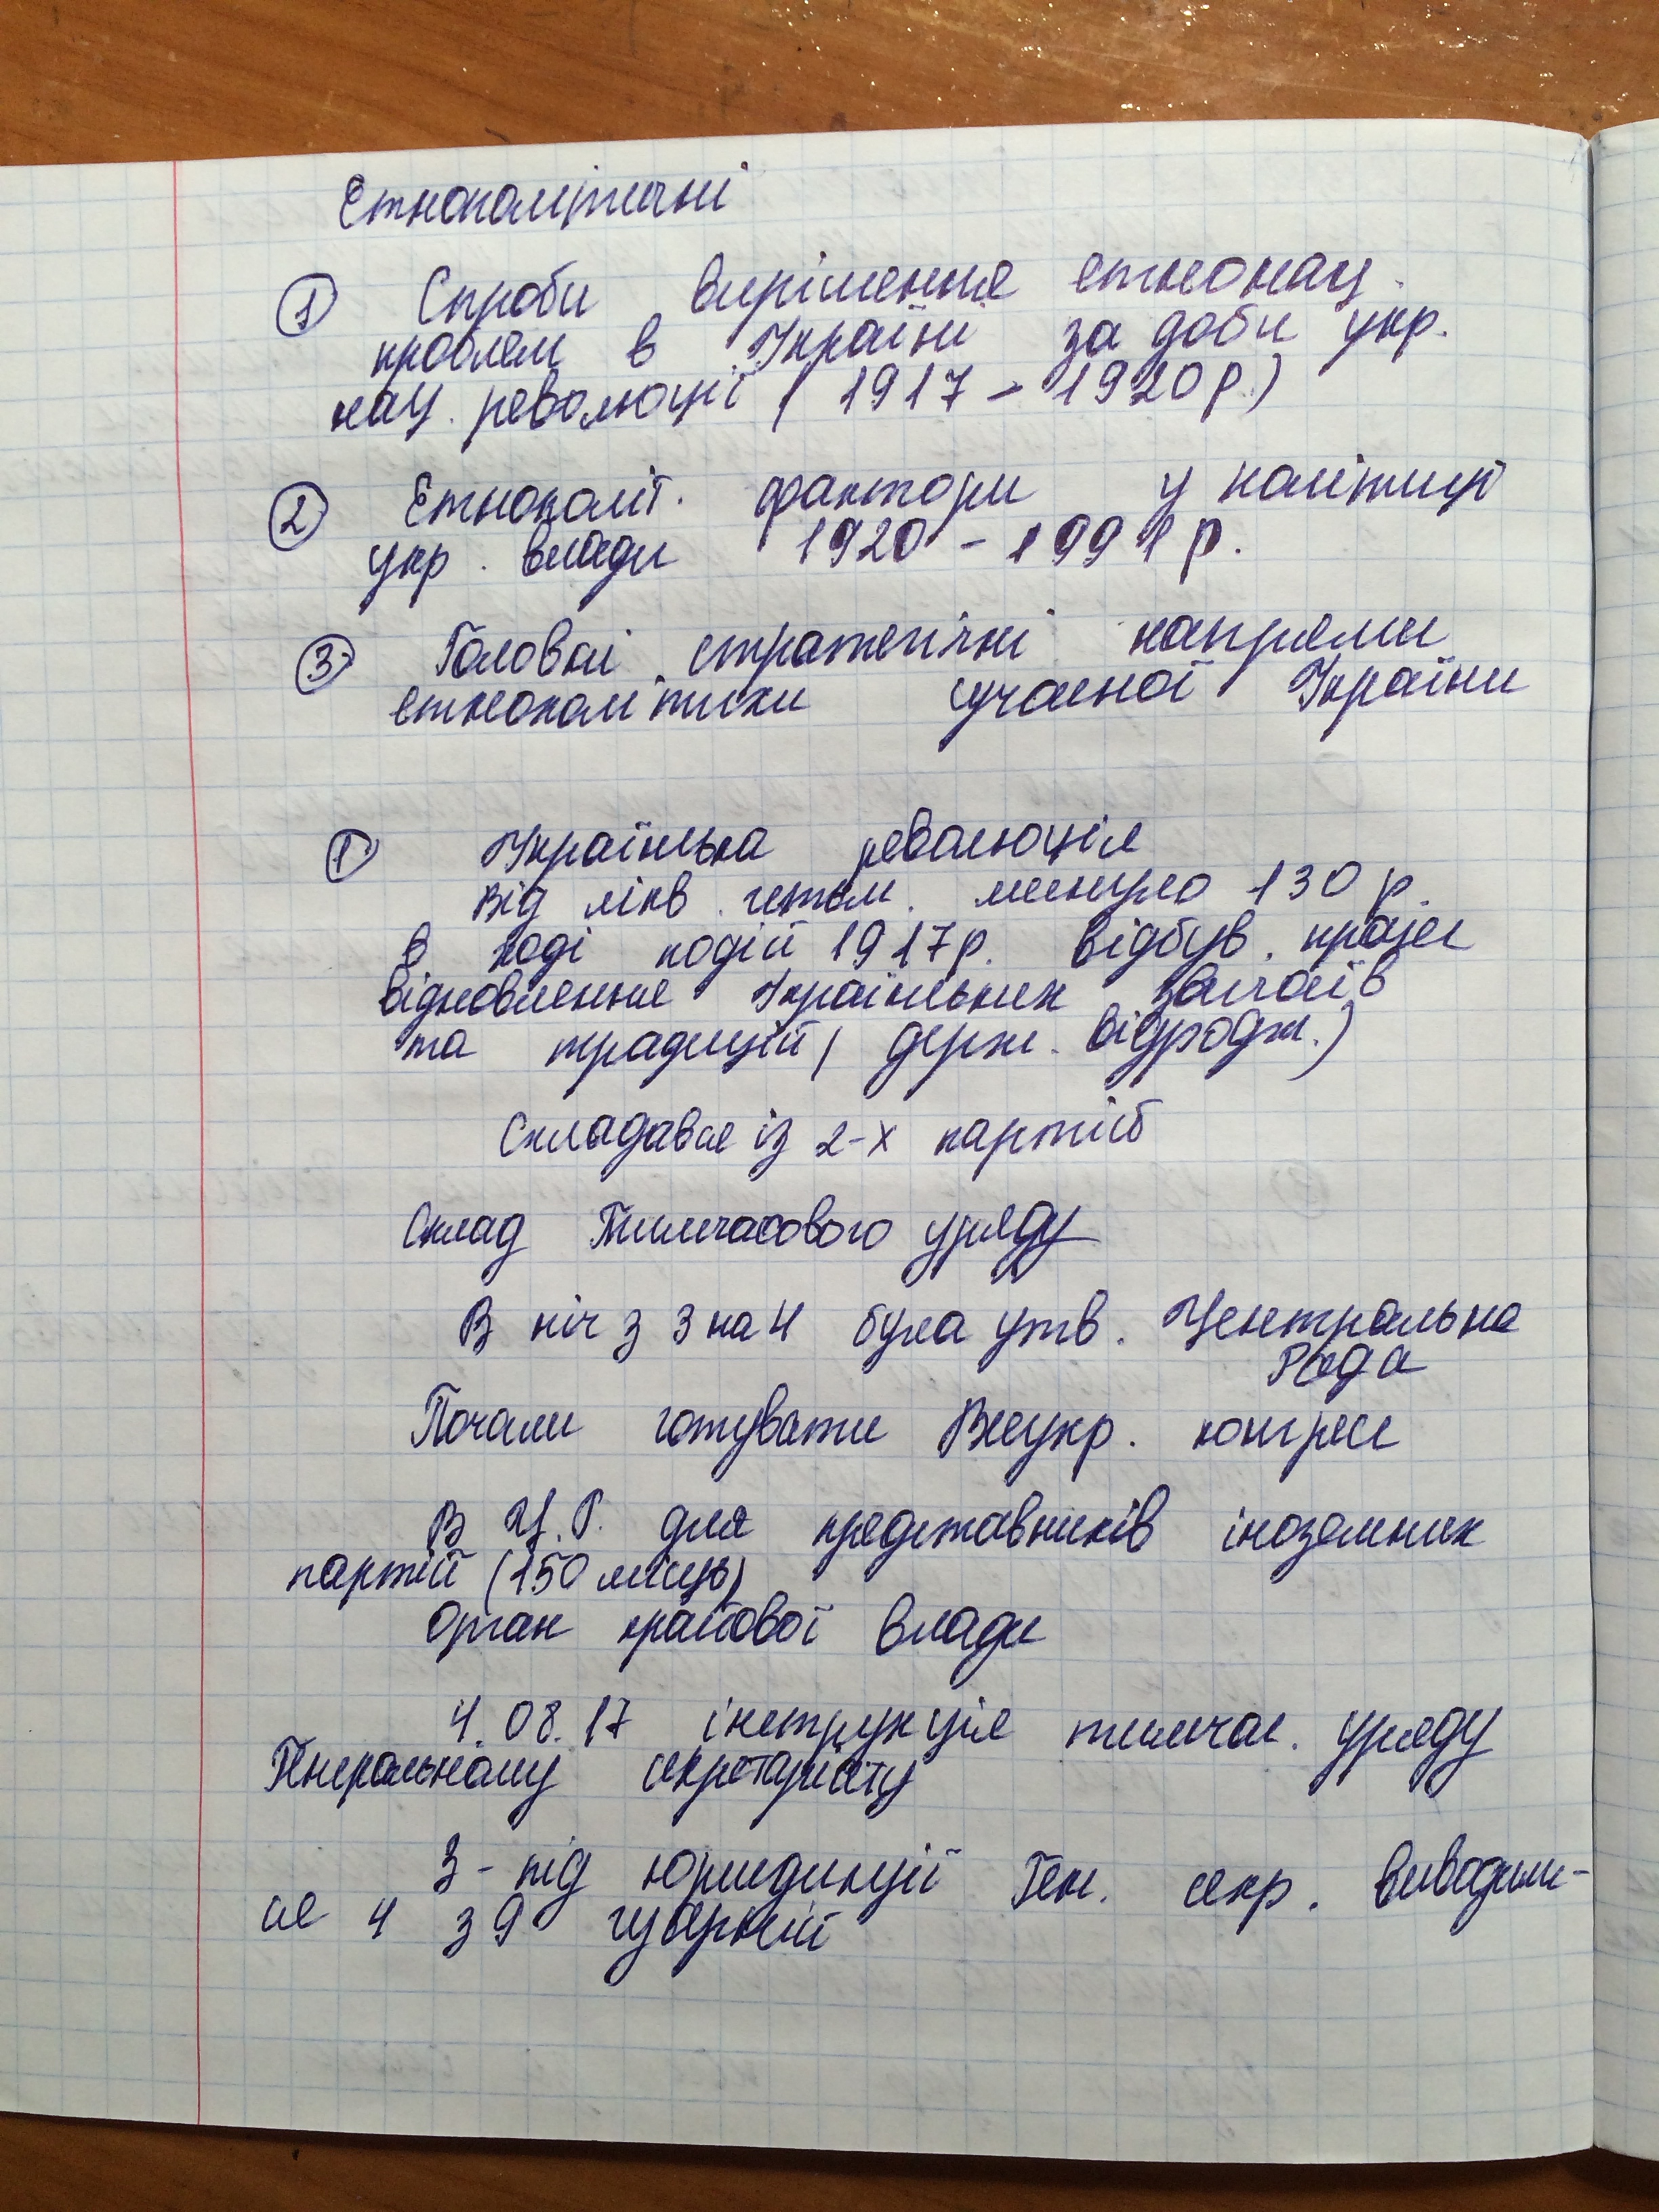 Етнополітичні
① Спроби вирішення етнонац.
проблем в Україні за доби укр.
нац. революції (1917 - 1920 р.)
② Етнополіт. фактори у політиці
укр. влади 1920 - 1991 р.
③ Головні стратегічні напрями
етнополітики сучасної України
① Українська революція
Від лікв. гетьм. минуло 130 р.
в ході подій 1917 р. відбув. процес
відновлення Українських звичаїв
та традицій (держ. відродж.)
Складався із 2-х партій
Склад Тимчасового уряду
В ніч з 3 на 4 була утв. Центральна
Рада
Почали готувати Всеукр. конгрес
В Ц.Р. для представників іноземних
партій (150 місць)
Орган крайової влади
4.08.17 інструкція тимчас. уряду
Генеральному секретаріату
З-під юрисдикції Ген. секр. виводили-
ся 4 з 9 губерній